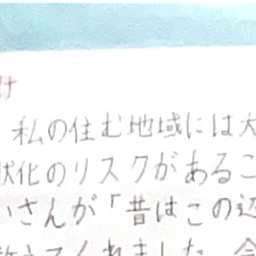 け
私の住む地域には大
状化のリスクがあるこ
いさんが「昔はこの辺
教えてくれました。会